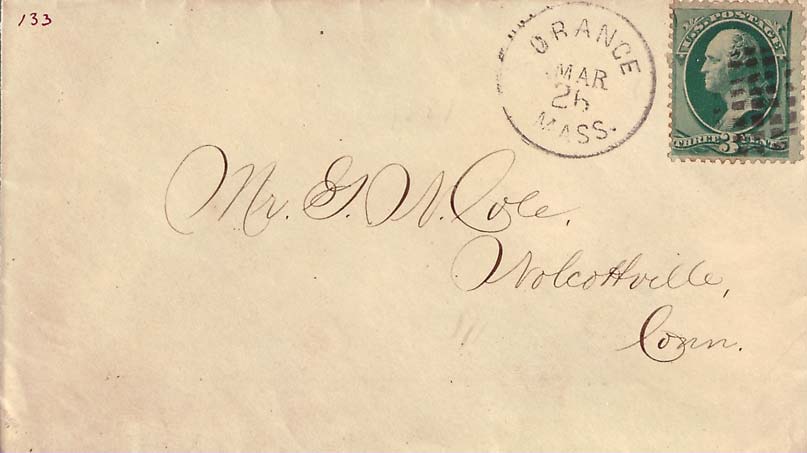 133
ORANGE
MAR
26
MASS.
U.S. POSTAGE
THREE 3 CENTS
Mr. G. W. Cole,
Wolcottville,
Conn.